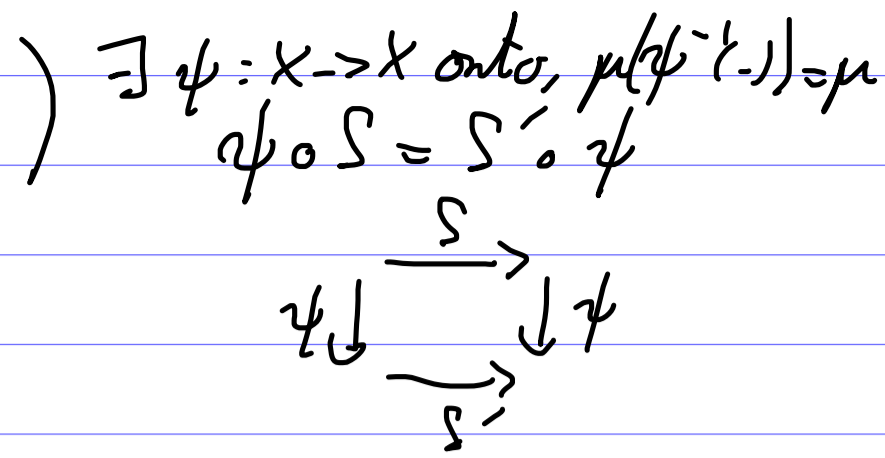 ) ∃ ψ : X -> X onto, μ(ψ⁻¹(-)) = μ
ψ ∘ S = S′ ∘ ψ
S
ψ ↓ → ↓ ψ
→
S′